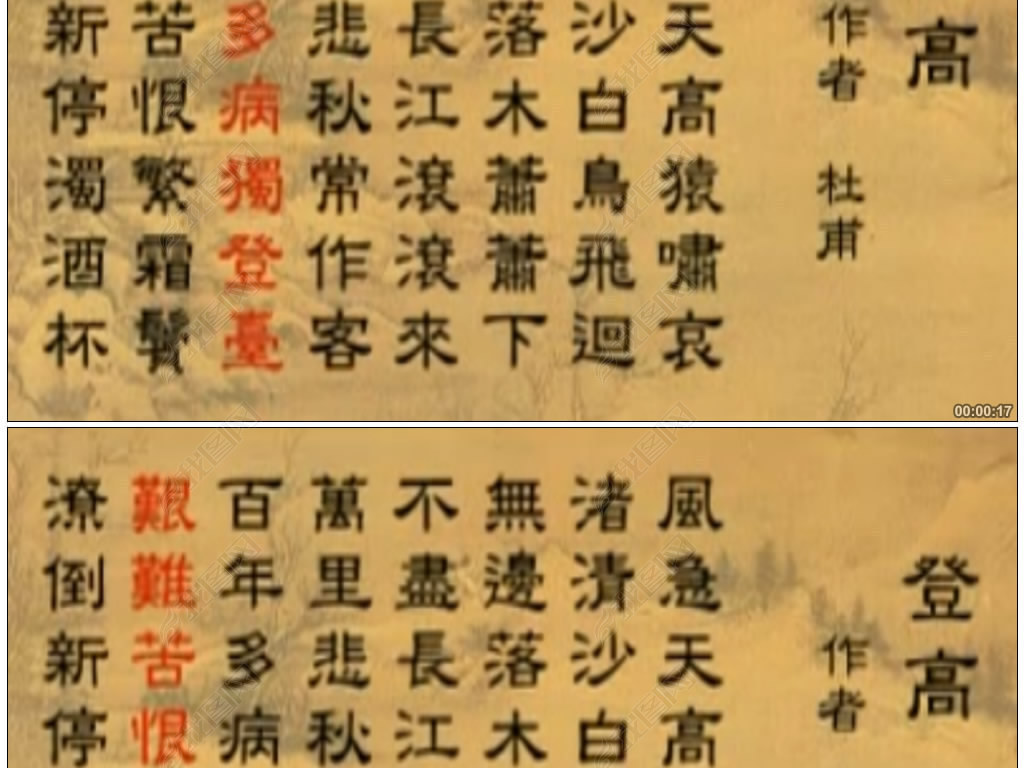 高
作者 杜甫
天高猿嘯哀
沙白鳥飛迴
落木蕭蕭下
長江滾滾來
悲秋常作客
多病獨登臺
苦恨繁霜鬢
新停濁酒杯
00:00:17
登高
作者
風急天高
渚清沙白
無邊落木
不盡長江
萬里悲秋
百年多病
艱難苦恨
潦倒新停